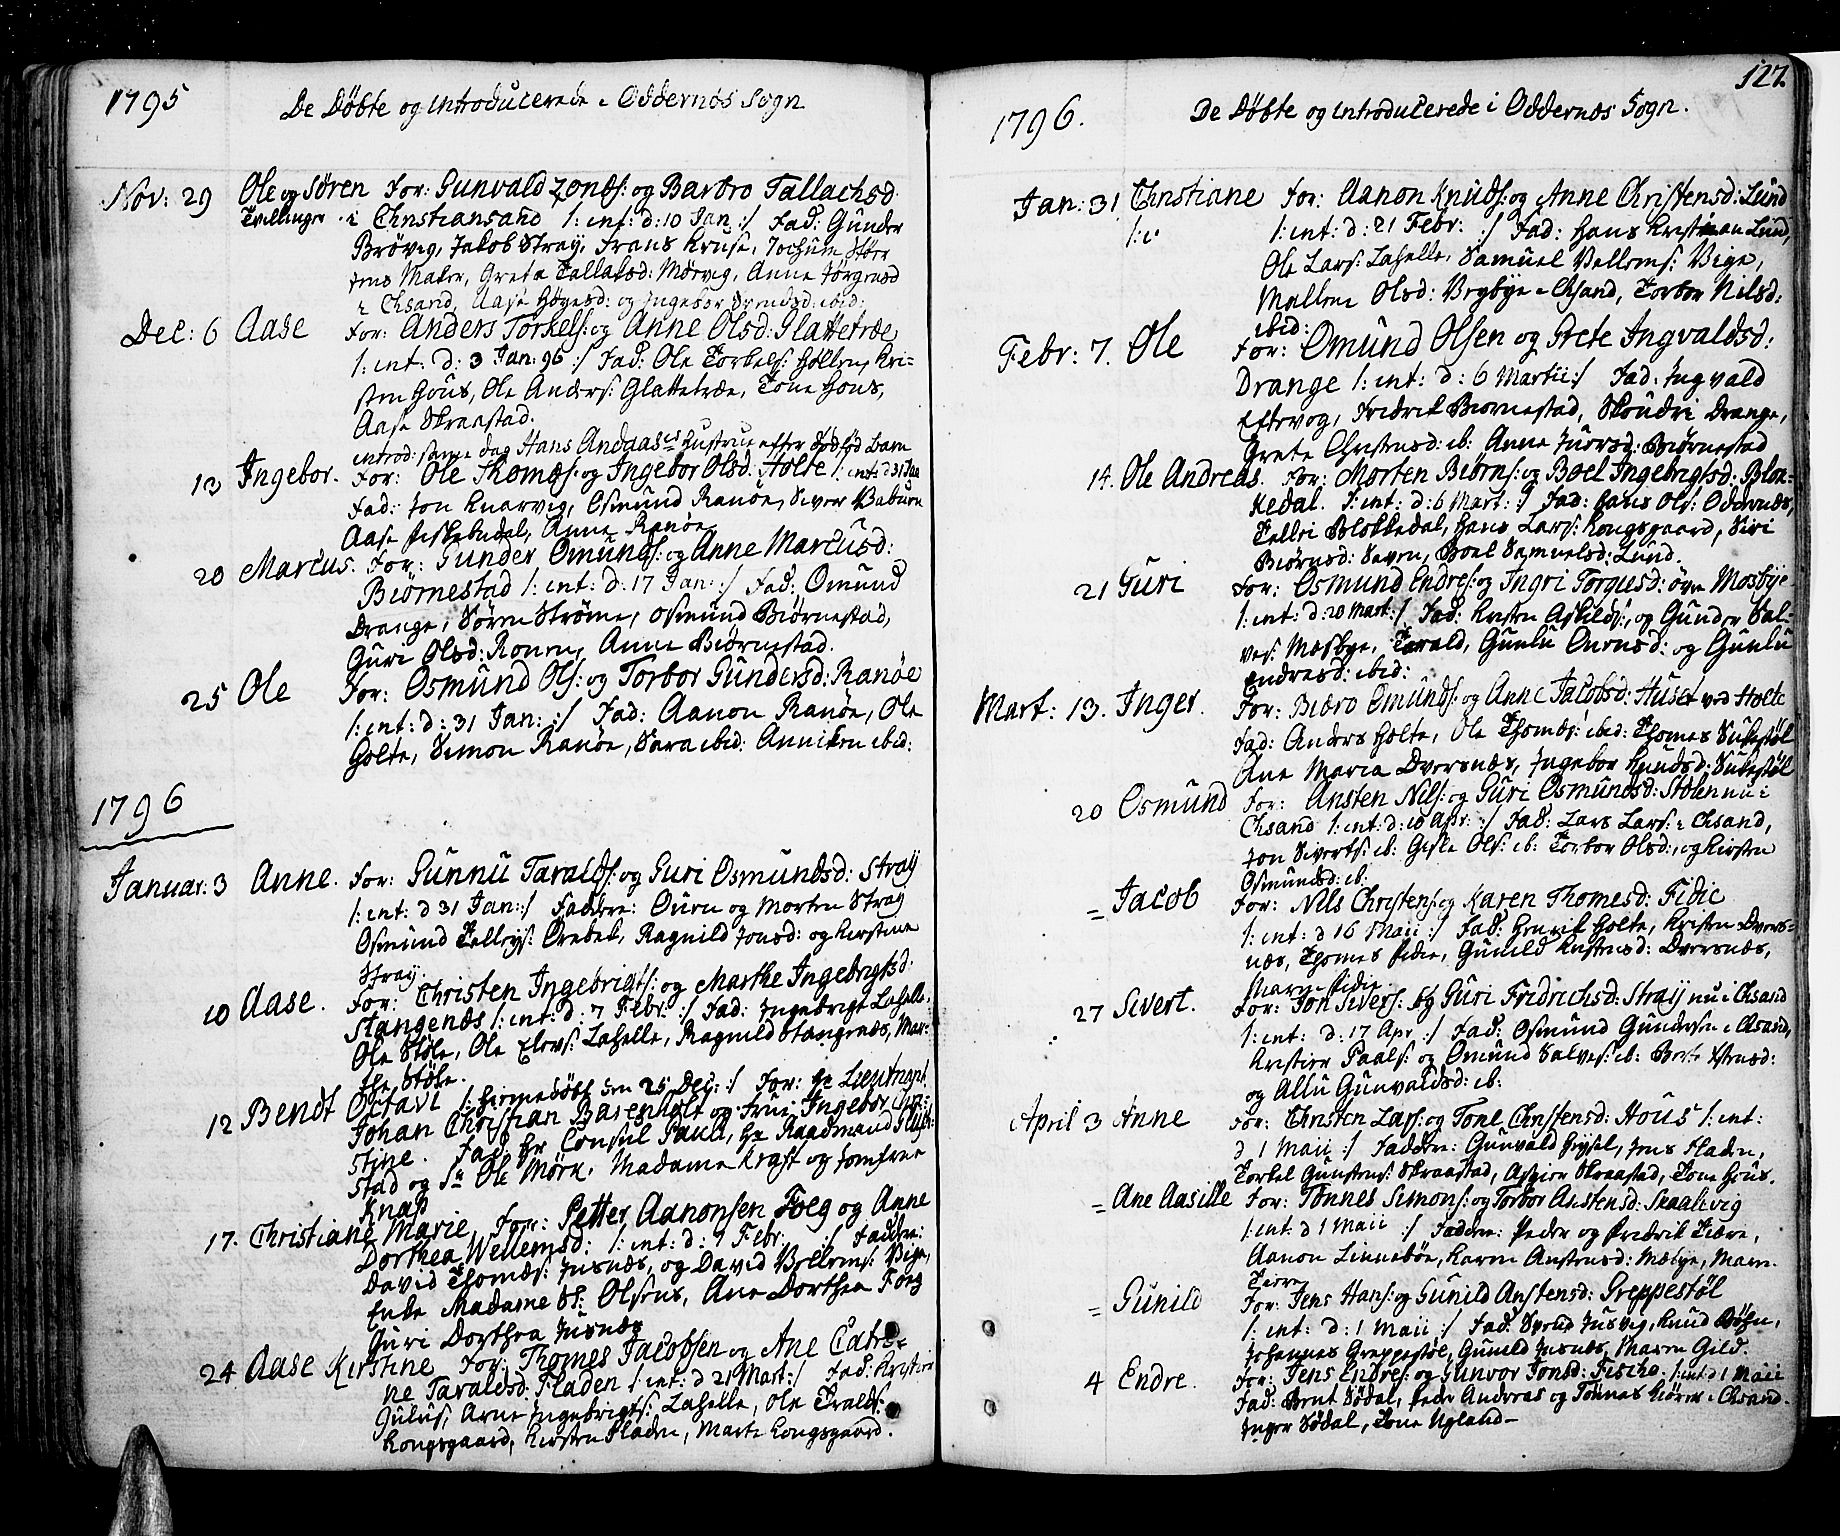 1795
De Døbte og introducerede i Oddernæs Sogn
Nov: 29 Ole og Søren For: Gunvald Jonæs: og Barbro Tallachsd:
Tvillinger i Christiansand /: int: d: 10 Jan: :/ Fad: Gunder
Brøvig, Jakob Straÿ, Frans Kruse, Jochum
Jens Maler, Greta Tallaksd: Mørvig, Anne Jørgensd
i Chsand, Aase og Ingebor ibid:
Dec: 6 Aase For: Anders Torkels: og Anne Olsd: Glattetræ
/: int: d: 3 Jan: 96 :/ Fad: Ole Torkels: Hollen, Kri-
sten Hous, Ole Anders: Glattetræ, Tone Hous,
Aase Straastad.
introd: samme dag Hans Andaas Hustrue efter dødfød Barn
13 Ingebor. For: Ole Thomæs: og Ingebor Olsd: Holte /: int: d 31 Jan
Fad: Jon Knarvig, Osmund Ranøe, Siver
Aase Anne Ranøe
20 Marcus. For: Gunder Omunds: og Anne Marcusd:
Biørnestad /: int: d: 17 Jan: :/ Fad: Omund
Drange, Søren Strøme, Osmund Biørnestad,
Guri Olsd: Ronen, Anne Biørnestad.
25 Ole For: Osmund Ols: og Torbor Gundersd: Ranøe
/: int: d: 31 Jan: :/ Fad: Aanon Ranøe, Ole
Holte, Simon Ranøe, Sara ibid: Anniken ibid:
1796
Januar: 3 Anne. For: Gunnu Taralds: og Guri Osmundsd: Straÿ
/: int: d 31 Jan: :/ Faddere: Ouen og Morten Straÿ
Osmund Tellevs: Ragnild Jonsd: og Kirstine
Straÿ.
10 Aase. For: Christen Ingebrigts: og Marthe Ingebrigtsd:
Stangenæs /: int: d: 7 Febr: :/ Fad: Ingebrigt Lahelle,
Ole Støle, Ole Lahelle, Ragnild Stangenæs, Mar-
the Støle.
12 Bendt Octavi /: hiemmedøbt den 25 Dec: :/ For: Hr Lieutnant
Johan Christian Barenholt og Frue Ingebor Chri-
stine. Fad: Hr Consul Paul, Hr Raadmand
Stad og Sr Ole Mørk, Madame Kraft og Jomfrue
Knap
17. Christiane Marie For: Petter Aanonsen Foeg og Anne
Dorthea Wellemsd: /: int: d: 9 Febr: :/ Faddere:
David Thomæs: Jusnæs, og David Vellems: Vige,
Enke Madame Sl: Olsens, Ane Dorthea Foeg
Guri Dorthea Jusnæs
24 Aase Kirstine For: Thomes Jacobsen og Ane Catri-
ne Taraldsd: Fladen /: int: d 21 Mart: :/ Fad: Kristian
Gulus, Arne Ingebrigts: Lahelle, Ole Taralds:
Kongsgaard, Kirsten Fladen, Marte Kongsgaard.
127.
1796.
De Døbte og introducerede i Oddernæs Sogn.
Jan: 31 Christiane For: Aanon Knuds: og Anne Christensd: Lund
/: i /: int: d: 21 Febr: :/ Fad: Hans Kristian Lund,
Ole Lars: Lahelle, Samuel Vellems: Vige,
Mallene Olsd: Brybye i Chsand, Torbor Nilsd:
ibid:
Febr: 7. Ole For: Omund Olsen og Grete Ingvaldsd:
Drange /: int: d: 6 Martii :/ Fad: Ingvald
Eftevog, Fredrik Biørnestad, Drange,
Grete Christensd: ib: Anne Biørnestad
14. Ole Andreas. For: Morten Biørns: og Boel Ingebrigtsd: Blok-
kedal. /: int: d: 6 Mart: :/ Fad: Hans Ols: Oddernæs,
Tellev Blokkedal, Hans Lars: Kongsgaard, Siri
Biørnsd: Boel Samuelsd: Lund.
21 Guri For: Osmund Endres: og Ingri Torguesd: øvre Mosbye
/: int: d: 20 Mart: :/ Fad: Kirsten Askilds:, og Gunder Sal-
ves: Mosbye, Tarald, Gunlu Ouensd: og Gunlu
Endresd: ibid:
Mart: 13. Inger. For: Biæro Omunds: og Anne Jacobsd: Huset ved Holte
Fad: Anders Holte, Ole Thomæs: ibid: Thomes Sukestøl
Ane Maria Dversnæs, Ingebor Knudsd: Sukestøl
20 Osmund For: Ansten Nils: og Guri Osmundsd: Stølen nu i
Chsand /: int: d: 10 Apr: :/ Fad: Lars Lars: i Chsand,
Jon Siverts: ib: Giske Ols: ib: Torbor Olsd:, og Kirsten
Osmundsd: ib:
= Jacob For: Nils Christens: og Karen Thomesd: Fidie
/: int: d 16 Maii :/ Fad: Henrik Holte, Kristen Dvers-
næs, Thomes Fidie, Gunild Kristensd: Dversnæs,
Maren Fidie.
27 Sivert. For: Jon Sivers: og Guri Fridrichsd: Straij nu i Chsand
/: int: d: 17 Apr: :/ Fad: Osmund Gundersen i Chsand,
Kristian Paals: og Omund Salves: ib: Berte
og Allu Gunvaldsd: ib:
April 3 Anne For: Christen Lars: og Tone Christensd: Hous /: int:
d 1 Maii :/ Faddere: Gunvald Jens Fladen,
Torkel Gunstens: Straastad, Asgier Straastad, Tone Hous.
= Ane Aasille For: Tønnes Simons: og Torbor Anstensd: Skaalevig
/: int: d 1 Maii :/ Faddere: Peder og Fredrik Tiære,
Aanon Linnebøe, Karen Anstensd: Mæbye, Maren
Tiære
= Gunild For: Jens Hans: og Gunild Anstensd: Greppestøl
/: int: d: 1 Maii :/ Fad: Svend Jusvig, Knud Bøen,
Johannes Greppestøl, Gunild Jusnæs, Maren Gild.
4 Endre. For: Jens Endres: og Gunvor Jonsd: Fiskaa. /: int: d 1 Maii
Fad: Bent Sødal, Peder Andreas og Tønnes i Chsand.
Inger Sødal, Tone Ugland –